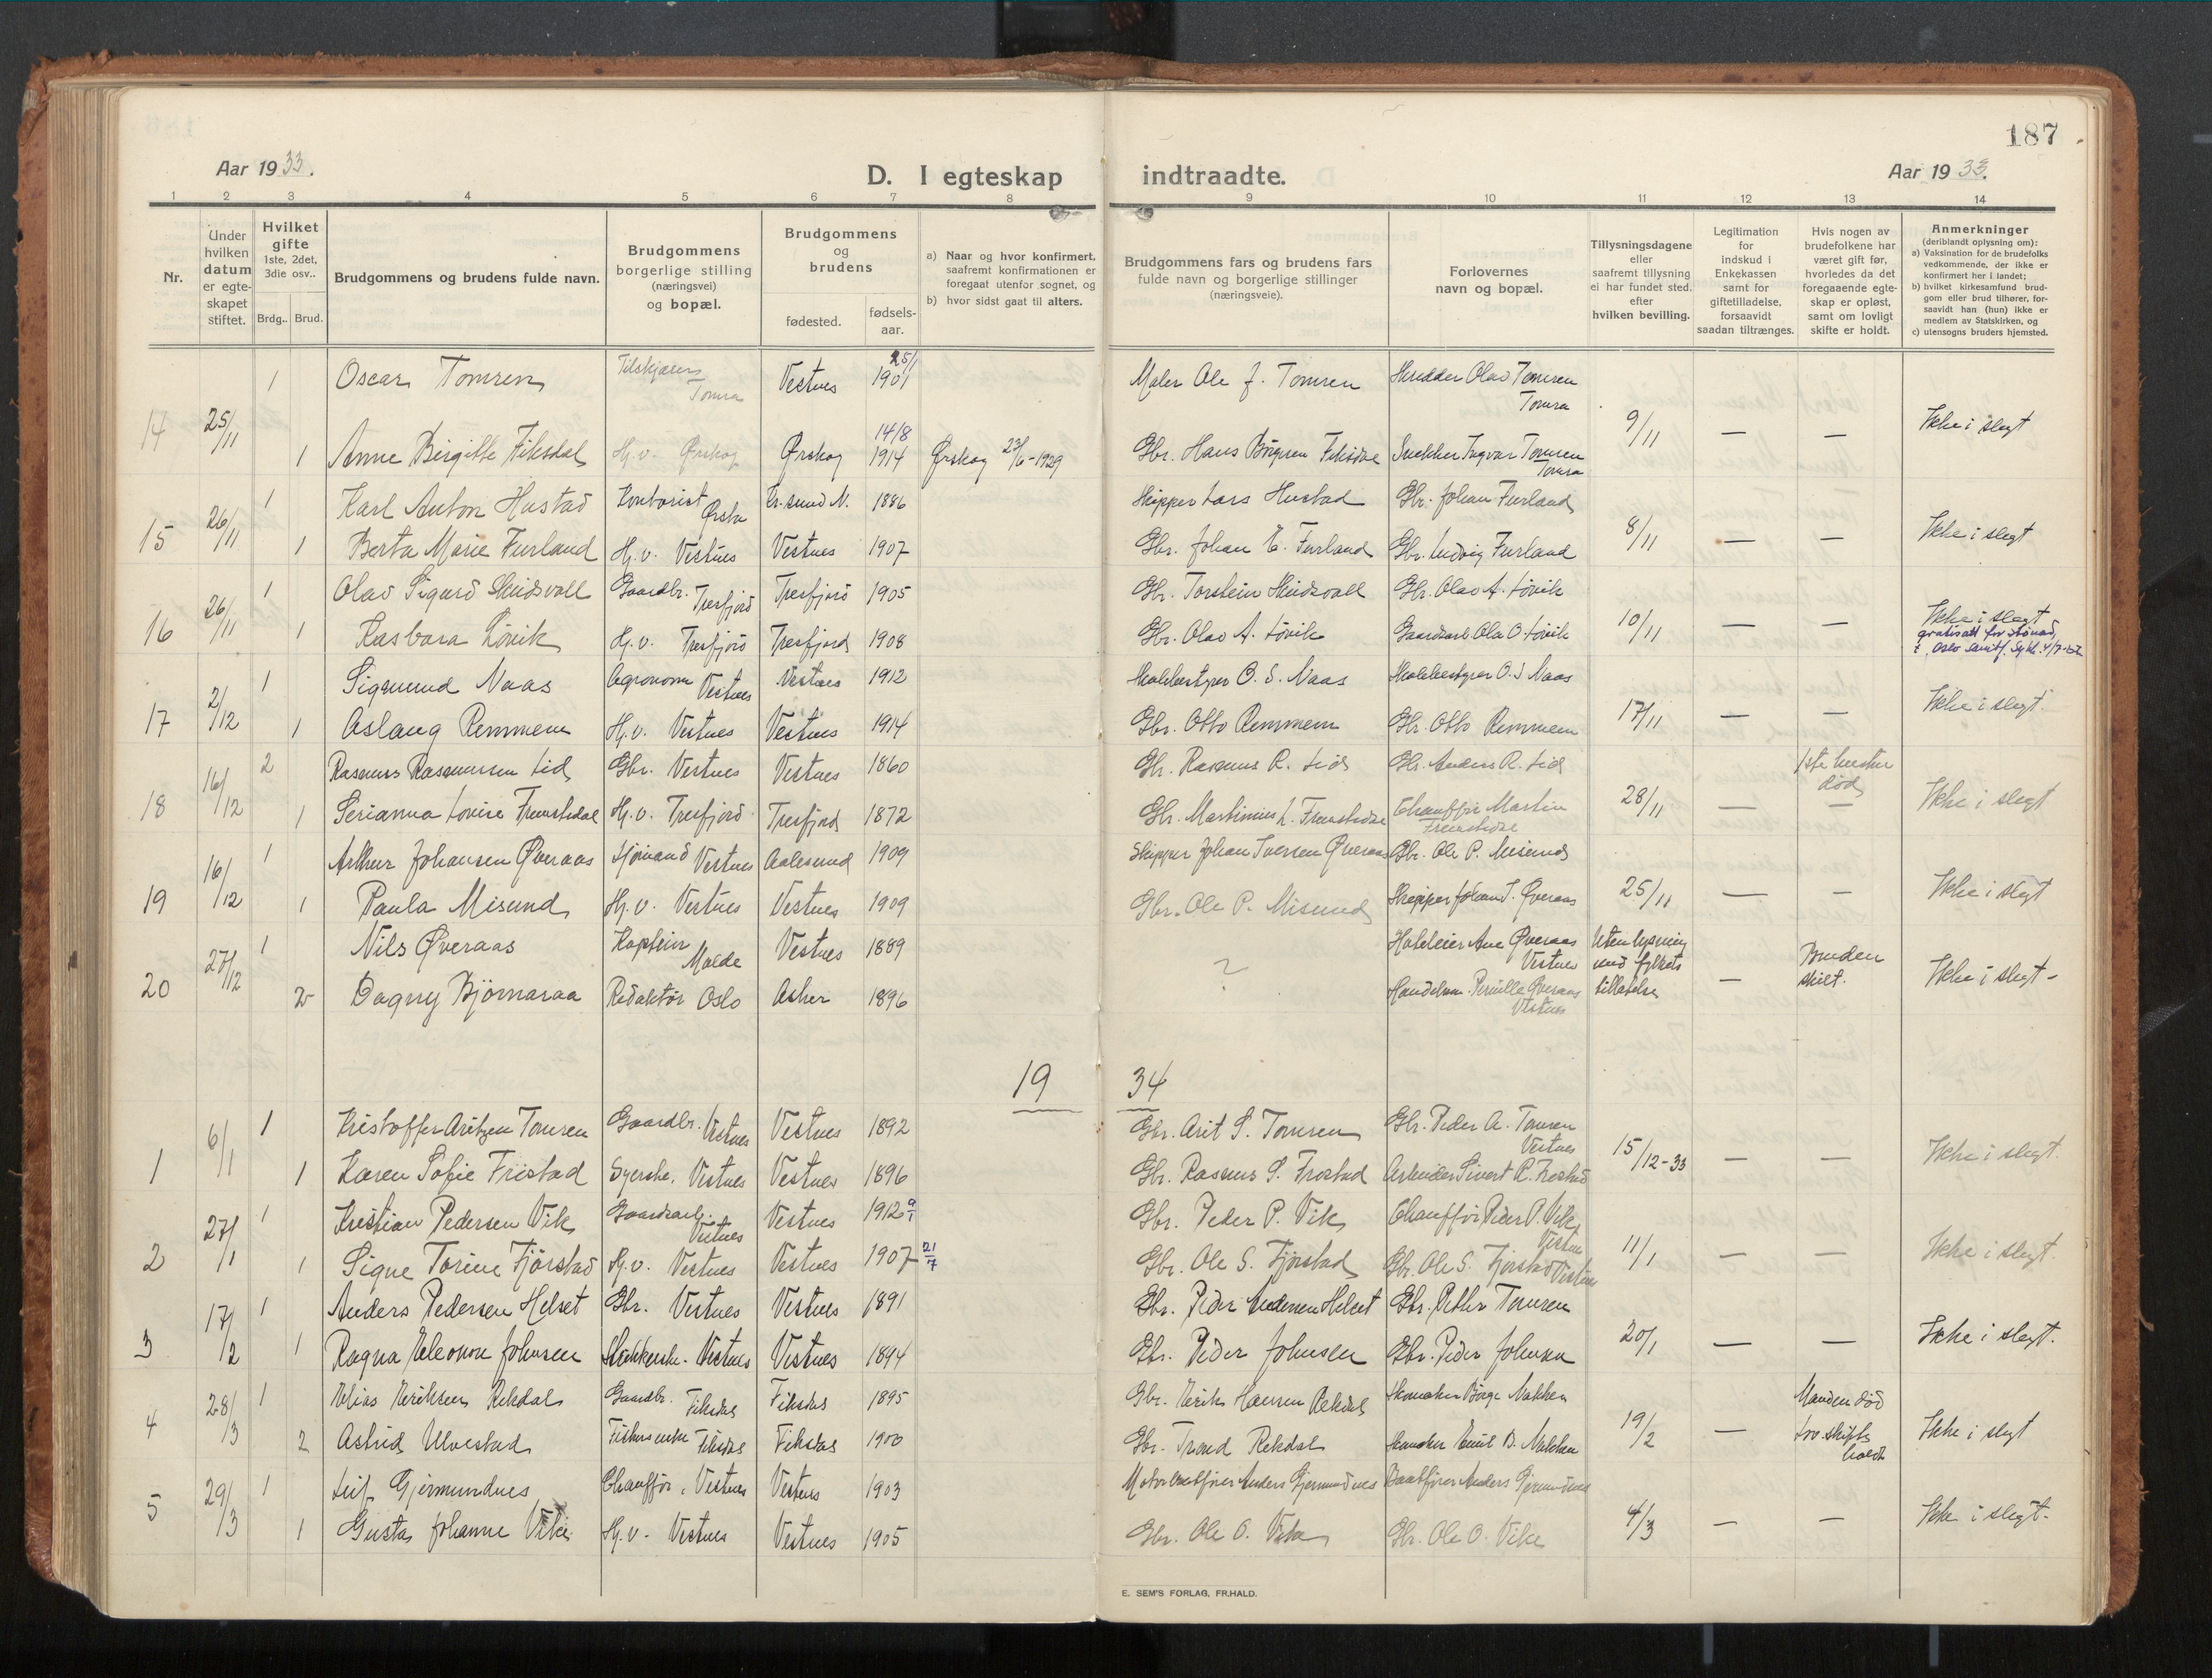 187
Aar 1933.
D. I egteskap indtraadte.
Aar 1933.
1 2 3 4 5 6 7 8 9 10 11 12 13 14
Nr.
Under hvilken datum er egteskapet stiftet.
Hvilket gifte 1ste, 2det, 3die osv..
Brdg.. Brud.
Brudgommens og brudens fulde navn.
Brudgommens borgerlige stilling (næringsvei) og bopæl.
Brudgommens og brudens
fødested.
fødselsaar.
a) Naar og hvor konfirmert, saafremt konfirmationen er foregaat utenfor sognet, og
b) hvor sidst gaat til alters.
Brudgommens fars og brudens fars fulde navn og borgerlige stillinger (næringsveie).
Forlovernes navn og bopæl.
Tillysningsdagene eller saafremt tillysning ei har fundet sted. efter hvilken bevilling.
Legitimation for indskud i Enkekassen samt for giftetilladelse, forsaavidt saadan tiltrænges.
Hvis nogen av brudefolkene har været gift før, hvorledes da det foregaaende egteskap er opløst, samt om lovligt skifte er holdt.
Anmerkninger (deriblandt oplysning om):
a) Vaksination for de brudefolks vedkommende, der ikke er konfirmert her i landet;
b) hvilket kirkesamfund brudgom eller brud tilhører, forsaavidt han (hun) ikke er medlem av Statskirken, og
c) utensogns bruders hjemsted.
1 Oscar Tomren Tomra Vestnes 25/1 1901 Maler Ole J. Tomren Skredder Olav Tomren Tomra
14 25/11 9/11 — — Ikke i slegt
1 Anne Birgitte Fiksdal Hj.v. Ørskog Ørskog 14/8 1914 Ørskog 23/6-1929 Gbr. Hans Fiksdal Snekker Ingvar Tomren Tomra
1 Karl Anton Hustad Kontorist Ørsta Kr.sund N. 1886 Skipper Lars Hustad Gbr. Johan Furland
15 26/11 8/11 — — Ikke i slegt
1 Berta Marie Furland Hj.v. Vestnes Vestnes 1907 Gbr. Johan E. Furland Gbr. Ludvig Furland
1 Olav Sigurd Skeidsvoll Gaardbr. Tresfjord Tresfjord 1905 Gbr. Torstein Skeidsvoll Gbr. Olav A. Løvik
16 26/11 10/11 — — Ikke i slegt
1 Løvik Hj.v. Tresfjord Tresfjord 1908 Gbr. Olav A. Løvik Gaardkarl Ola O. Løvik
1 Sigmund Naas Agronom Vestnes Vestnes 1912 Skolebestyrer O. S. Naas Skolebestyrer O. S. Naas
17 2/12 17/11 — — Ikke i slegt.
1 Aslaug Remmem Hj.v. Vestnes Vestnes 1914 Gbr. Otto Remmem Gbr. Otto Remmem
2 Rasmus Rasmussen Lid Gbr. Vestnes Vestnes 1860 Gbr. Rasmus R. Lid Gbr. Anders R. Lid 1ste hustru død
18 16/12 28/11 — — Ikke i slegt
1 Serianna Lovise Fremstedal Hj.v. Tresfjord Tresfjord 1872 Gbr. Martinius L. Fremstedal Chauffør Martin Fremstedal
1 Arthur Johansen Øveraas Sjømand Vestnes Aalesund 1909 Skipper Johan Iversen Øveraas Gbr. Ole P. Misund
19 16/12 25/11 — — Ikke i slegt
1 Paula Misund Hj.v. Vestnes Vestnes 1909 Gbr. Ole P. Misund Skipper Johan I. Øveraas
1 Nils Øveraas Kaptein Molde Vestnes 1889 ? Hoteleier Ane Øveraas Vestnes Uten lysning med fylkets tillatelse
20 27/12 — Bruden skilt. Ikke i slegt-
2 Dagny Bjørnaraa Redaktør Oslo Asker 1896 Pernille Øveraas Vestnes
19 34
1 Kristoffer Aritzen Tomren Gaardbr. Vestnes Vestnes 1892 Gbr. Arit S. Tomren Gbr. Peder A. Tomren Vestnes
1 6/1 15/12-33 — — Ikke i slegt.
1 Karen Sofie Frostad Syerske. Vestnes Vestnes 1896 Gbr. Rasmus S. Frostad Arbeider Sivert R. Frostad
1 Kristian Pedersen Vik Gaardkarl. Vestnes Vestnes 1912 9/1 Gbr. Peder P. Vik Chauffør Peder P. Vik Vestnes
2 27/1 11/1 — — Ikke i slegt.
1 Signe Torine Fjørstad Hj.v. Vestnes Vestnes 1907 21/7 Gbr. Ole S. Fjørstad Gbr. Ole S. Fjørstad Vestnes
1 Anders Pedersen Helset Gbr. Vestnes Vestnes 1891 Gbr. Peder Andersen Helset Gbr. Petter Tomren
3 17/2 20/1 — — Ikke i slegt.
1 Ragna Eleonore Johnsen Vestnes Vestnes 1894 Gbr. Peder Johnsen Gbr. Peder Johnsen
1 Elias Eriksen Rekdal Gaardbr. Fiksdal Fiksdal 1895 Gbr. Erik Hansen Rekdal Skomaker Børge Nakken Manden død
4 28/3 19/2 — lov. skifte holdt Ikke i slegt
2 Astrid Ulvestad Fiskerenke Fiksdal Fiksdal 1900 Gbr. Trond Rekdal Skomaker Emil B. Nakken
1 Leif Gjermundnes Chauffør. Vestnes Vestnes 1903 Anders Gjermundnes Baatfører Anders Gjermundnes
5 29/3 4/3 — — Ikke i slegt-
1 Gusta Johanne Vike Hj.v. Vestnes Vestnes 1905 Gbr. Ole O. Vike Gbr. Ole O. Vike
E. SEM'S FORLAG, FR.HALD.